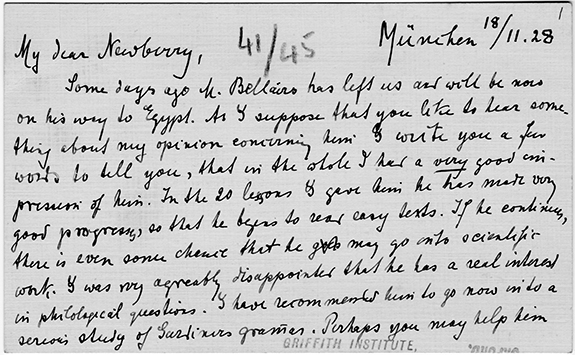 1
München 18/11.28
41/45
My dear Newberry,
Some days ago M. Bellairs has left us and will be now
on his way to Egypt. As I suppose that you like to hear some-
thing about my opinion concerning him I write you a few
words to tell you, that in the whole I had a very good im-
pression of him. In the 20 lessons I gave him he has made very
good progress, so that he begins to read easy texts. If he continues,
there is even some chance that he may go onto scientific
work. I was very agreably disappointed that he has a real interest
in philological questions. I have recommended him to go now into a
serious study of Gardiners grammar. Perhaps you may help him
GRIFFITH INSTITUTE,